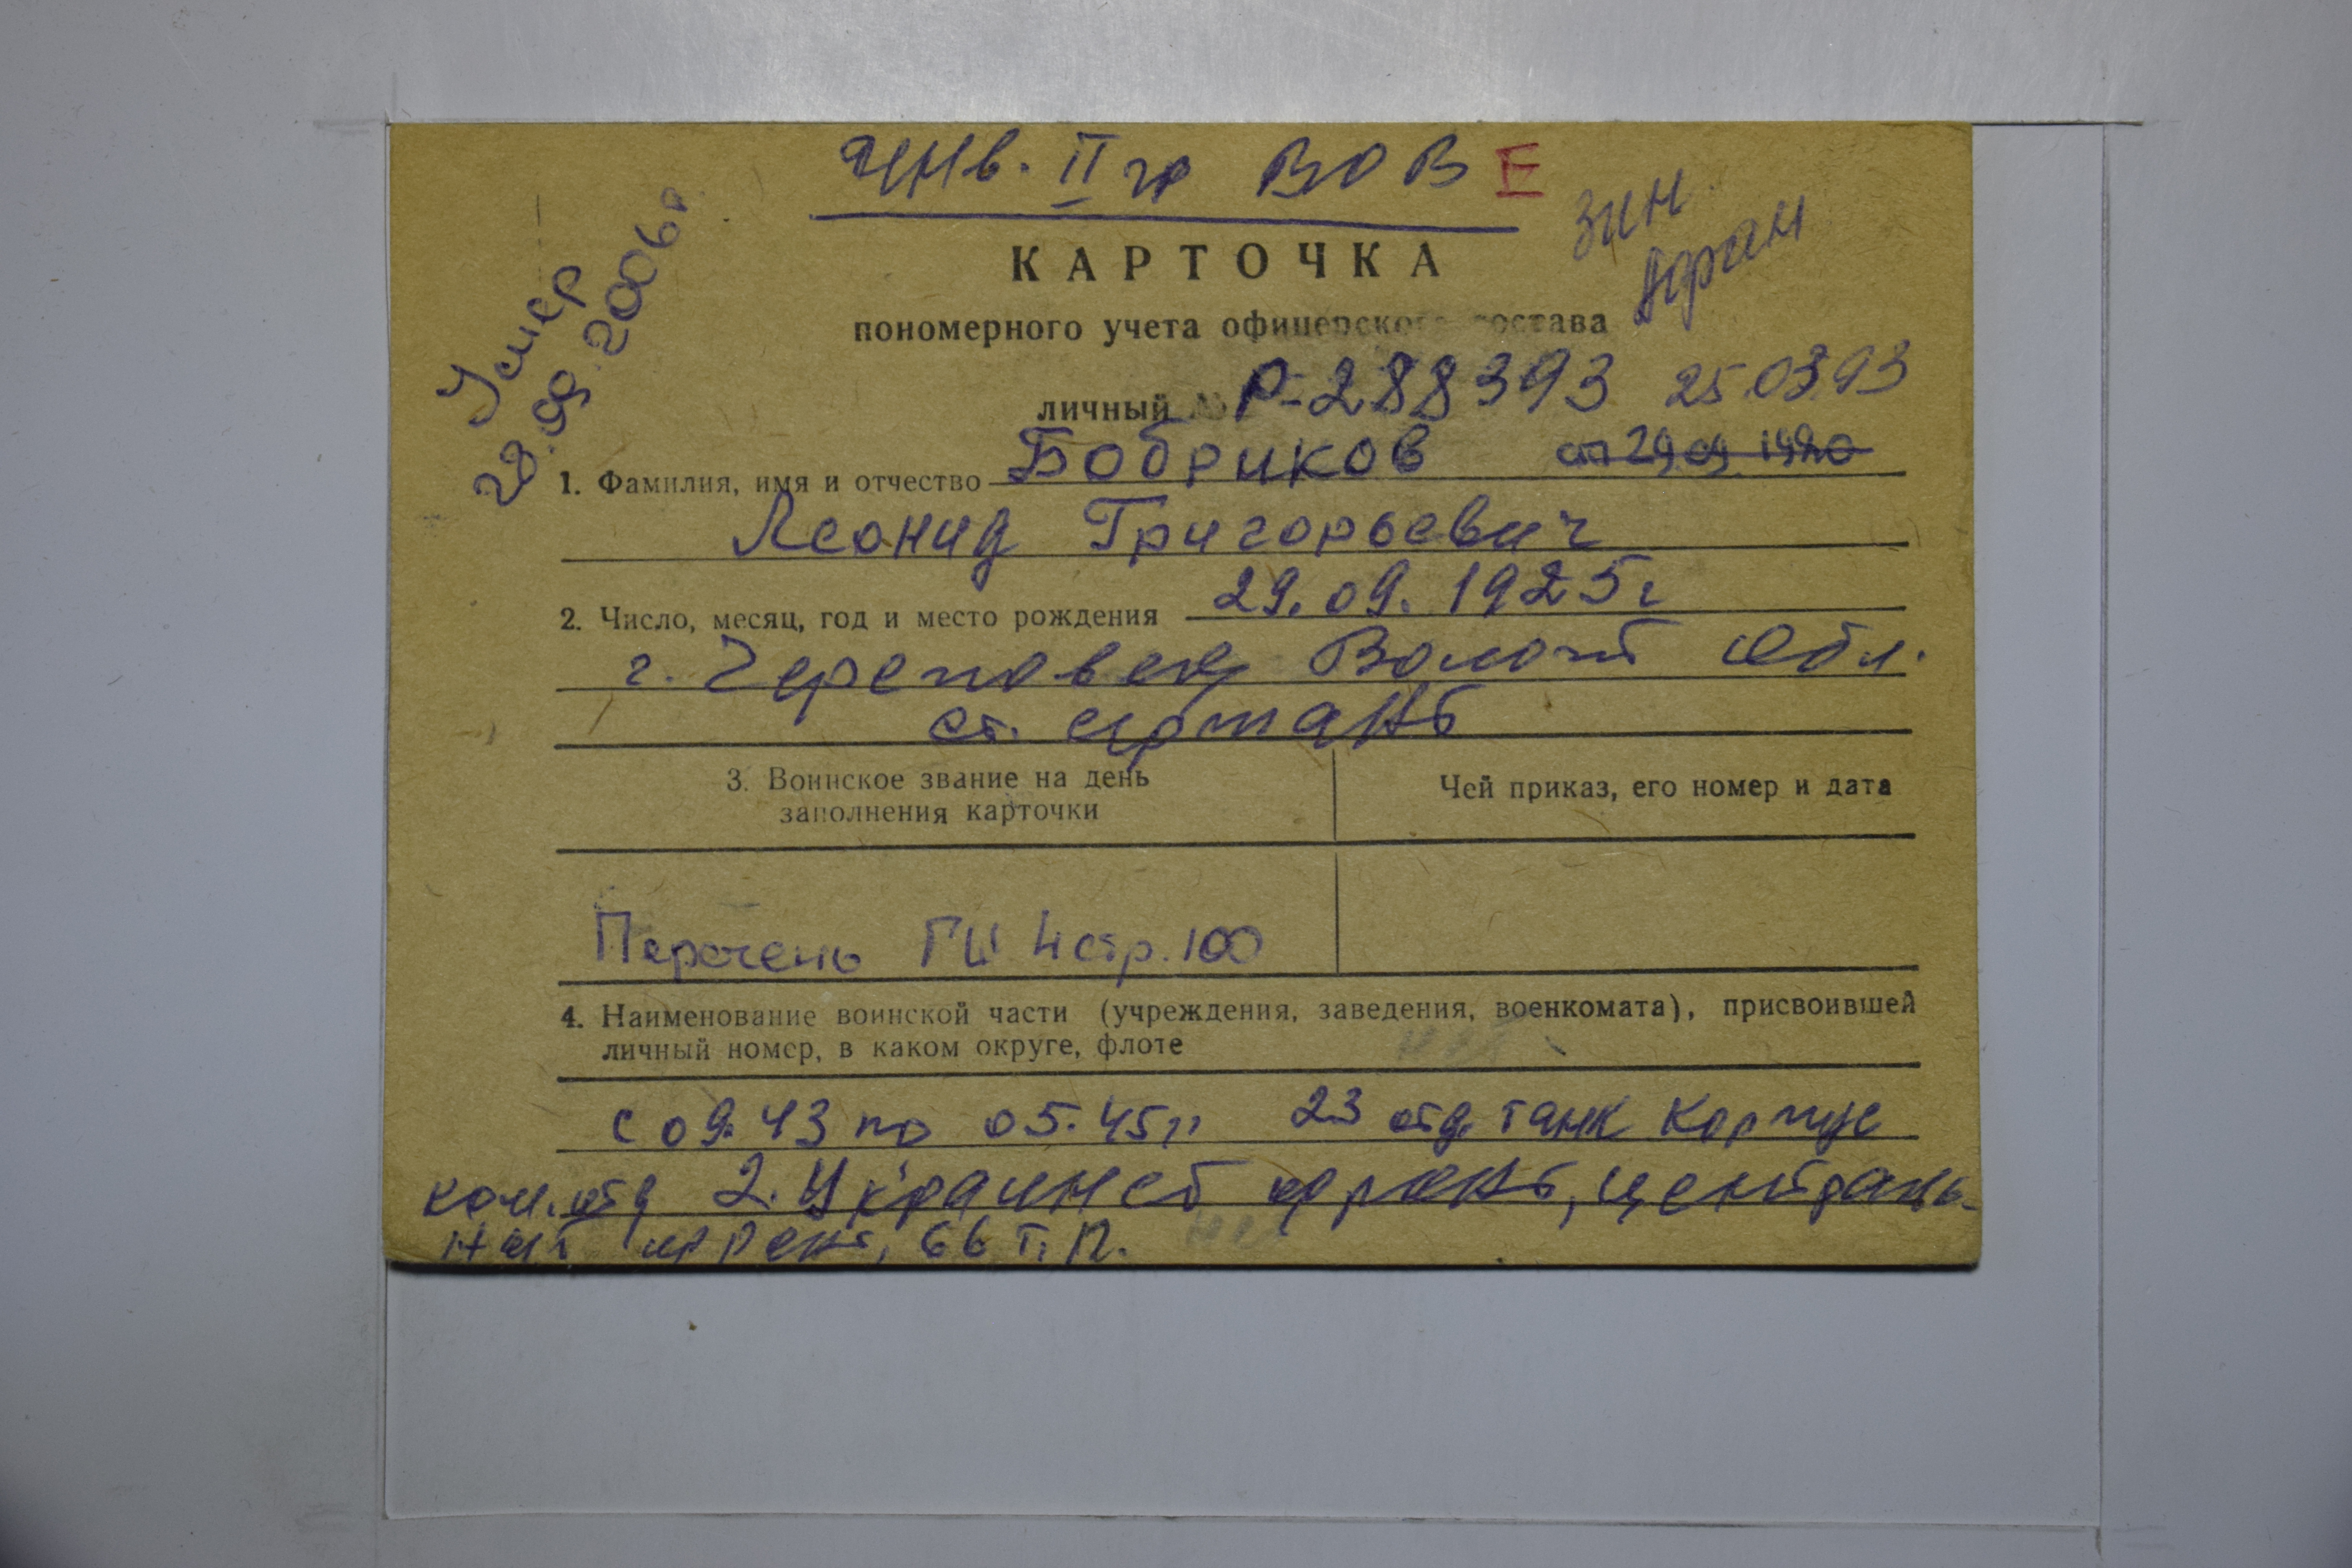 Инв. II гр ВОВ Е
Умер
28.09.2006г
КАРТОЧКА
пономерного учета офицерского состава
личный № Р-288393 25.03.93
1. Фамилия, имя и отчество Бобриков ст 29.09.1920
Леонид Григорьевич
2. Число, месяц, год и место рождения 29.09.1925г
г. Череповец Волог обл.
ст. сержант
3. Воинское звание на день
заполнения карточки
Чей приказ, его номер и дата
Перечень ГШ 4 стр. 100
4. Наименование воинской части (учреждения, заведения, военкомата), присвоившей
личный номер, в каком округе, флоте
с 09.43 по 05.45г 23 отд танк корпус
ком. отд 2. Украинс фронт, централь-
ный фронт, 66 т. п.